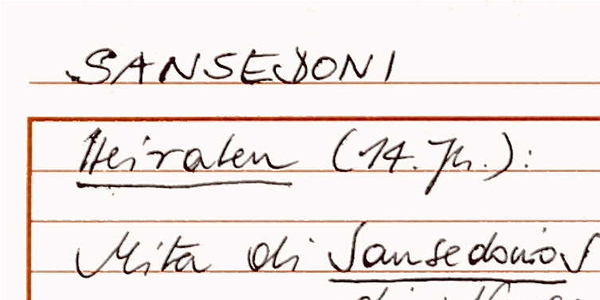 SANSEDONI
Heiraten (14. Jh.):
Mita di Sansedonio